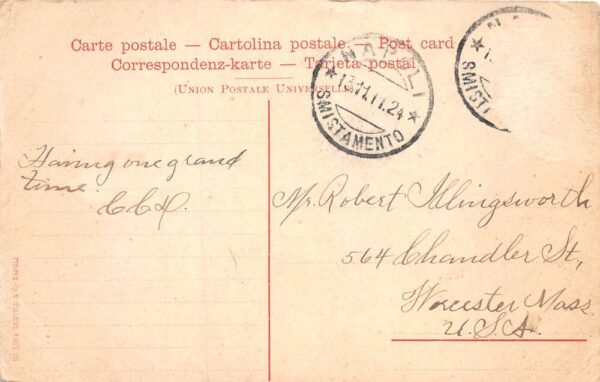 Carte postale — Cartolina postale — Post card
Correspondenz-karte — Tarjeta postal
(UNION POSTALE UNIVERSELLE)
NAPOLI
13.11.11.24
SMISTAMENTO
NA
SMIST
Having one grand
time.
Mr. Robert Illingsworth
564 Chandler St,
Worcester Mass
U.S.A.